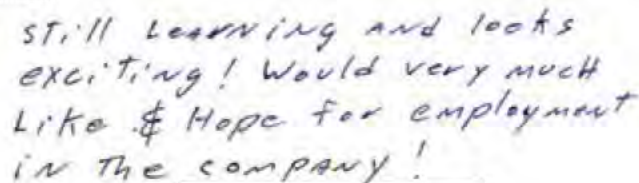 still Learning and looks
exciting! Would very much
Like & Hope for employment
in the company!